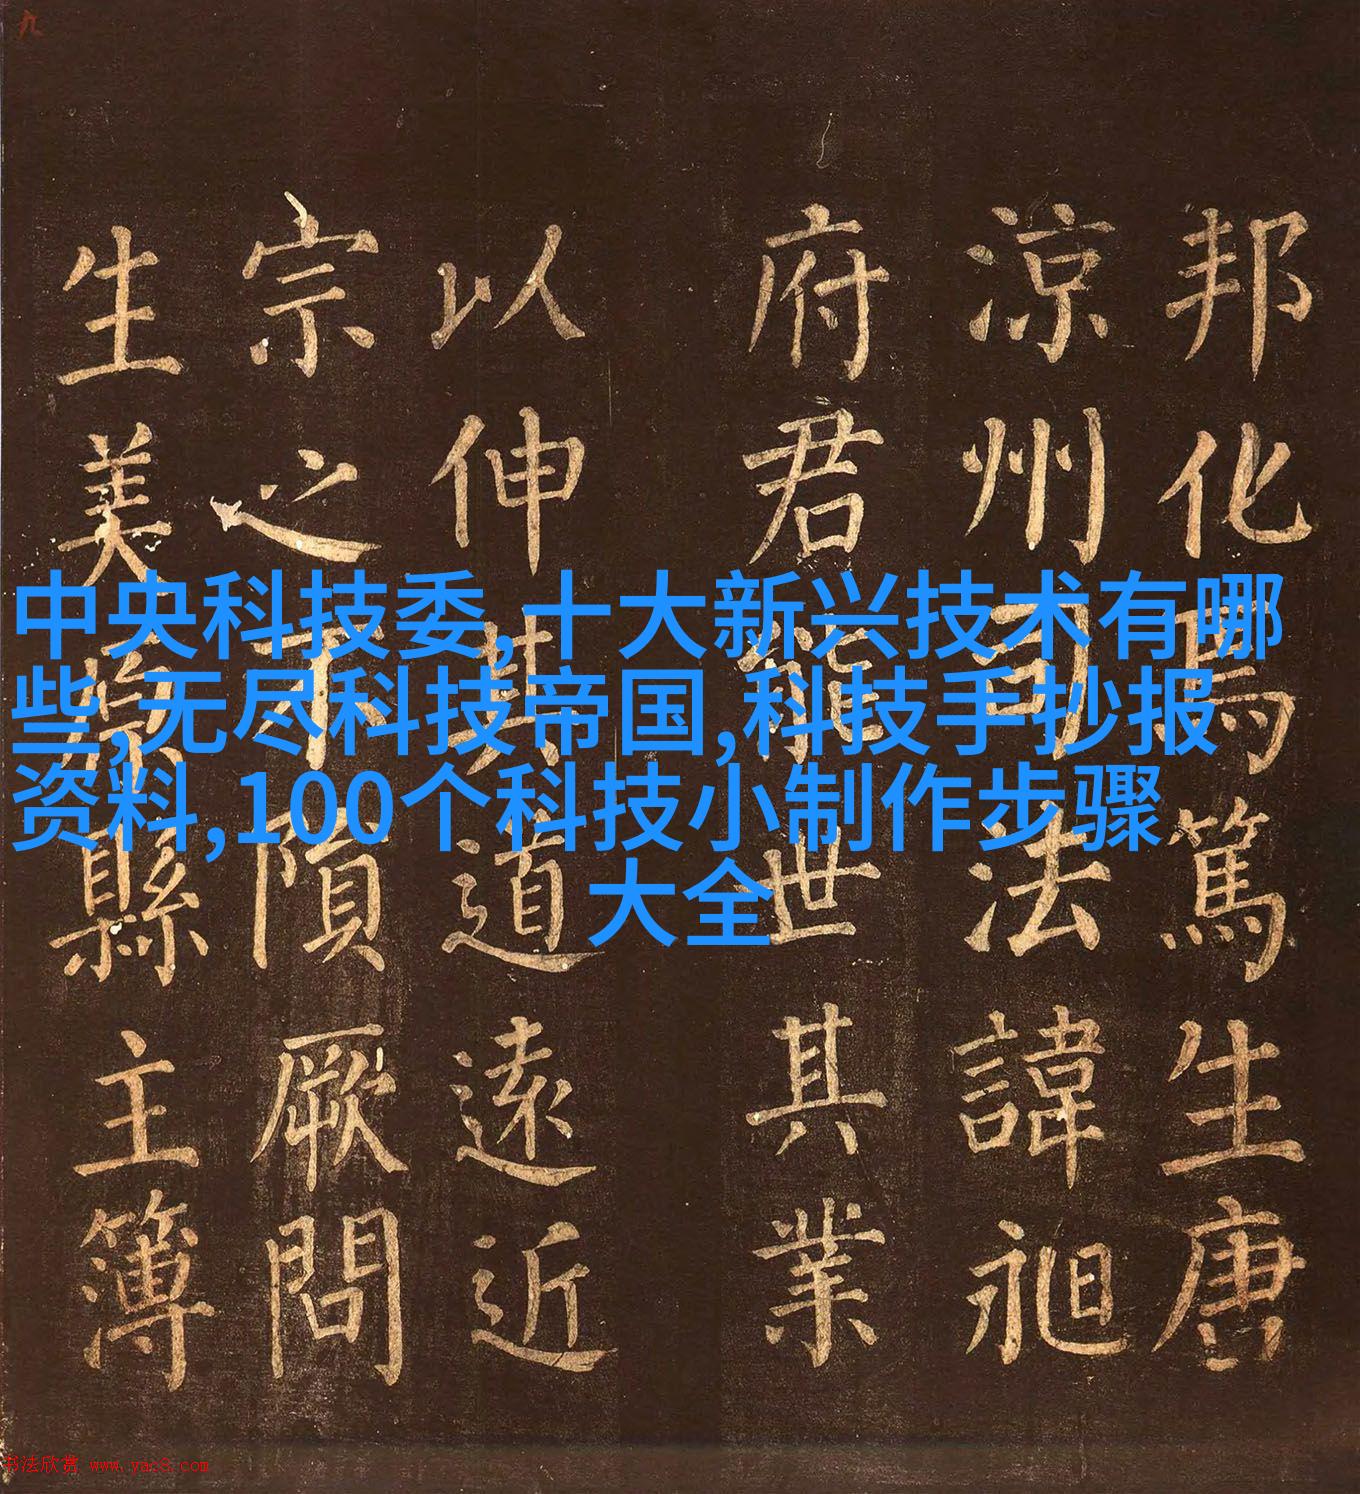 九
邦化焉篤生唐
涼州司法諱昶
府君能世其業
以伸其道遠近
宗之不隕厥問
生美原縣主簿
中央科技委,十大新兴技术有哪
些,无尽科技帝国,科技手抄报
资料,100个科技小制作步骤
大全
书法欣赏 www.yac8.com